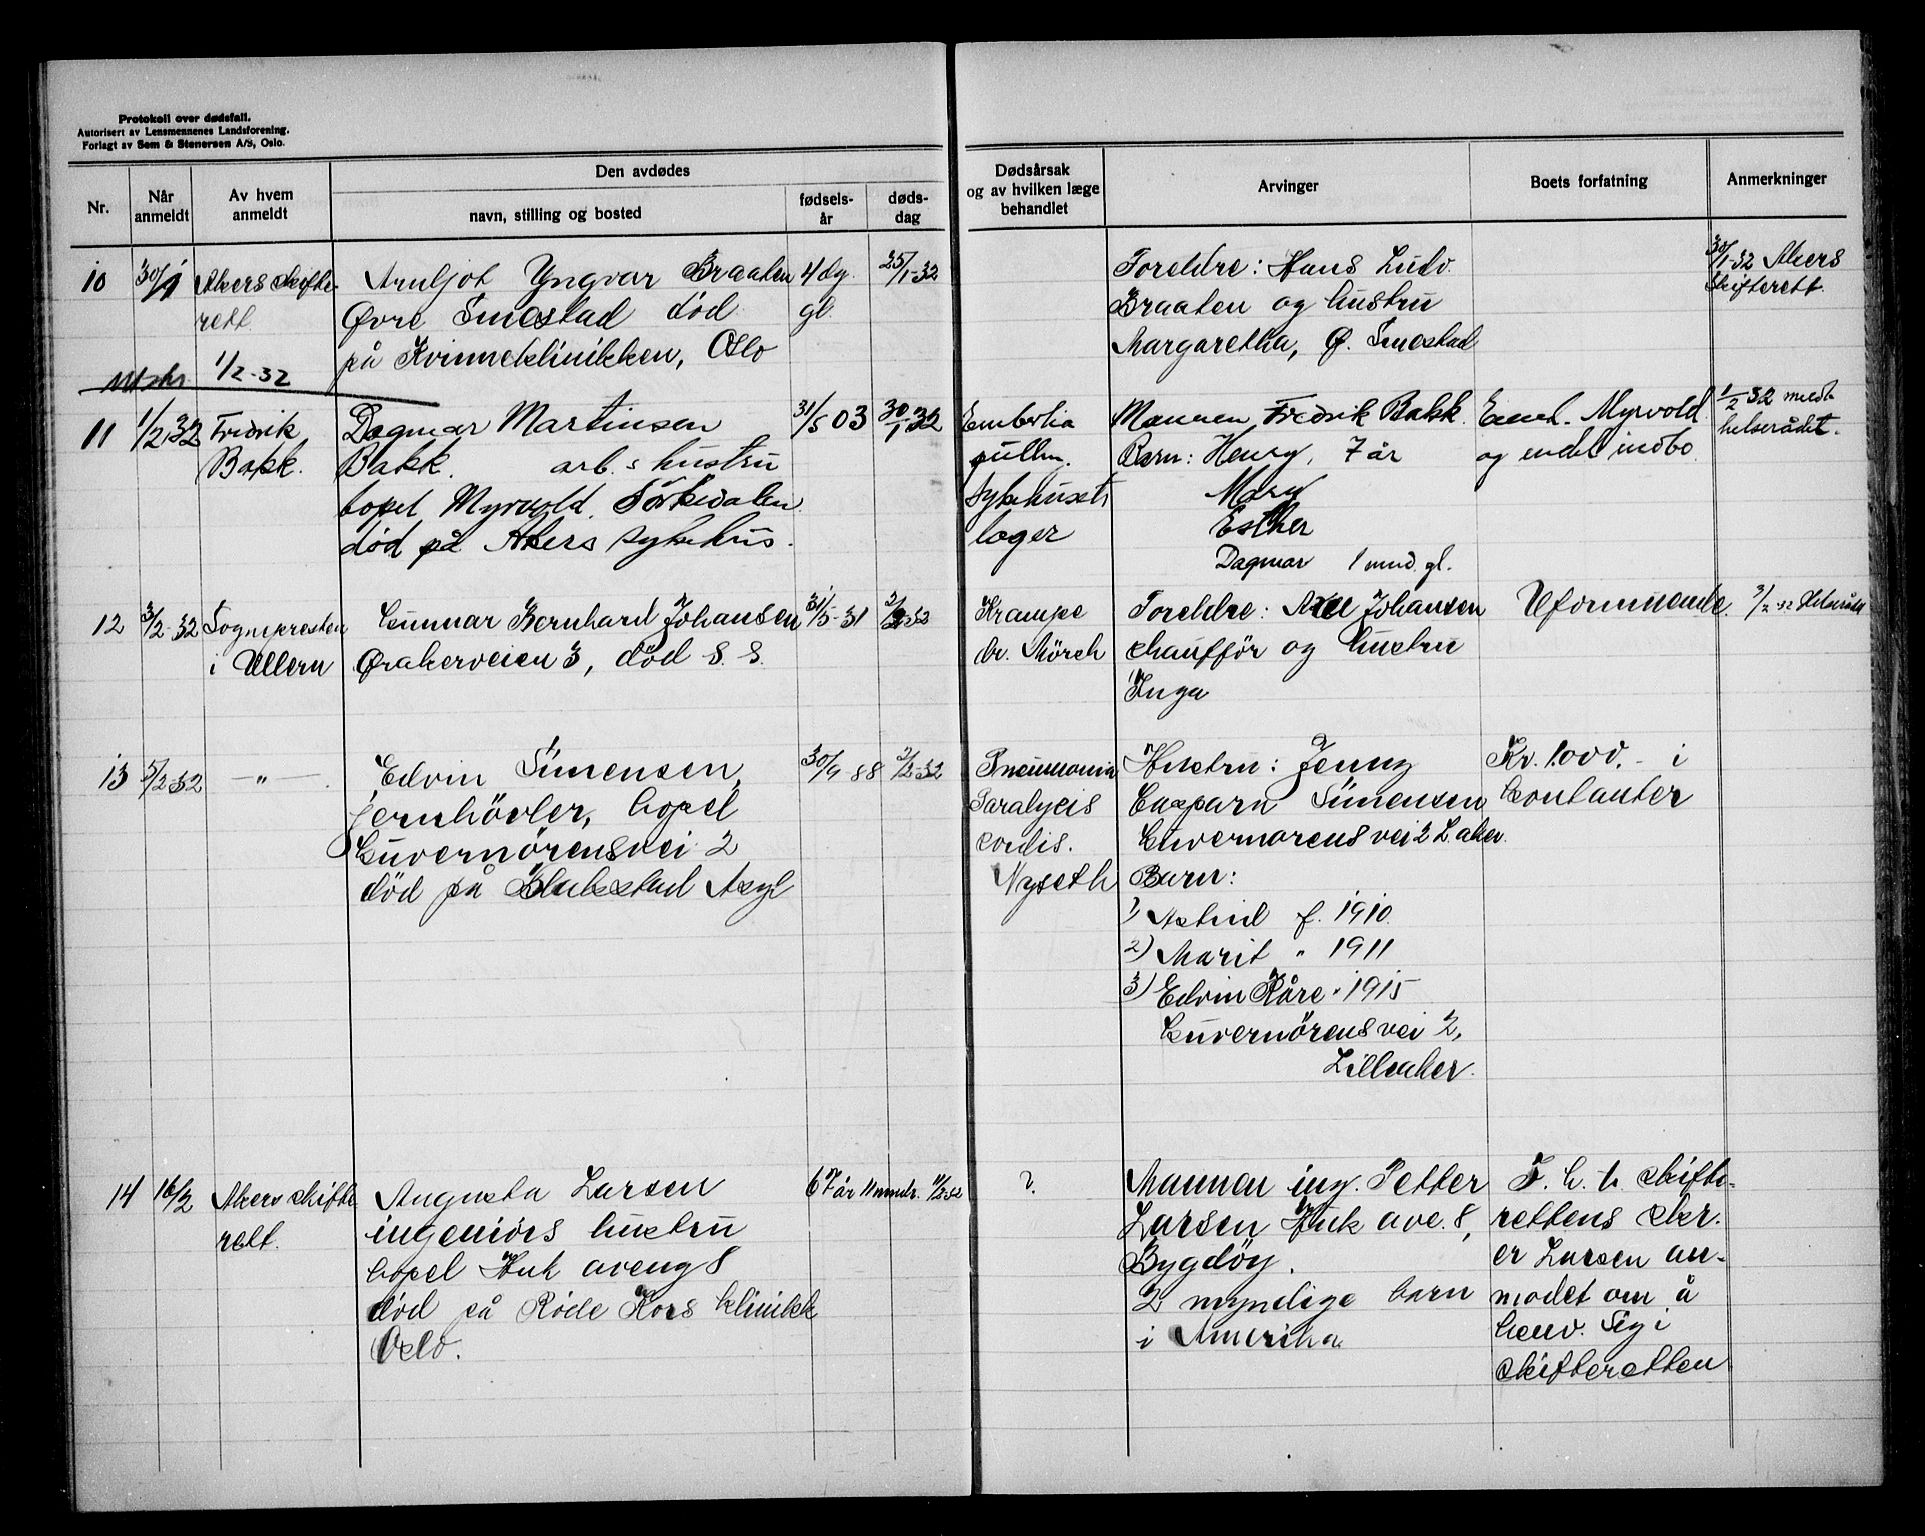 Protokoll over dødsfall.
Autorisert av Lensmennenes Landsforening.
Forlagt av Sem & Stenersen A/S, Oslo.
Nr.
Når
anmeldt
Av hvem
anmeldt
Den avdødes
navn, stilling og bosted
fødsels-
år
døds-
dag
Dødsårsak
og av hvilken læge
behandlet
Arvinger
Boets forfatning
Anmerkninger
10
30/1
Akers skifte-
rett
Arnljot Yngvar Braaten
Øvre Smestad død
på Kvinneklinikken, Oslo
4 dg.
gl.
25/1-32
Foreldre: Hans Ludv.
Braaten og hustru
Margaretha, Ø. Smestad
30/1-32 Akers
Skifterett.
Utskr. 1/2-32
11
1/2 32
Fredrik
Bakk.
Dagmar Martinsen
Bakk. arb.s hustru
bopel Myrvold, Sörkedalen
død på Akers sykehus.
31/5 03
30/1 32
Emboli
pulm.
Sykehusets
læger
Mannen Fredrik Bakk.
Barn: Henry, 7 år
Mary
Esther
Dagmar 1 mnd. gl.
Eiend. Myrvold
og endel indbo
1/2 32 meldt
helserådet.
12
3/2-32
Sognepresten
i Ullern
Gunnar Bernhard Johansen
Ørakerveien 3, død s. s.
31/5-31
2/2-32
Krampe
Dr. Mörch
Foreldre: Axel Johansen
chaufför og hustru
Inga
Uformuende.
3/2-32 Helseråd
13
5/2-32
— " —
Edvin Simensen,
jernhövler, bopel
Guvernörensvei 2
död på Blakstad Asyl
30/9 88
2/2-32
Pneumonia
Paralysis
cordis.
Nyseth
Hustru: Jenny
Caspara Simensen
Guvernorens vei 2 L.aker.
Barn:
1) Astrid f. 1910.
2) Marit " 1911
3) Edvin Kåre " 1915
Guvernörens vei 2,
Lilleaker.
Kr. 1000.- i
kontanter
14
16/2
Akers skifte
rett.
Augusta Larsen
ingeniörs hustru
bopel Huk aveny 8
död på Röde Kors klinikk
Oslo.
67 år 11 mndr.
11/2-32
?.
Mannen ing. Petter
Larsen Huk ave. 8,
Bygdöy.
2 myndige barn
i Amerika
F. h. t. skifte-
rettens skr.
er Larsen an-
modet om å
henv. sig i
skifteretten